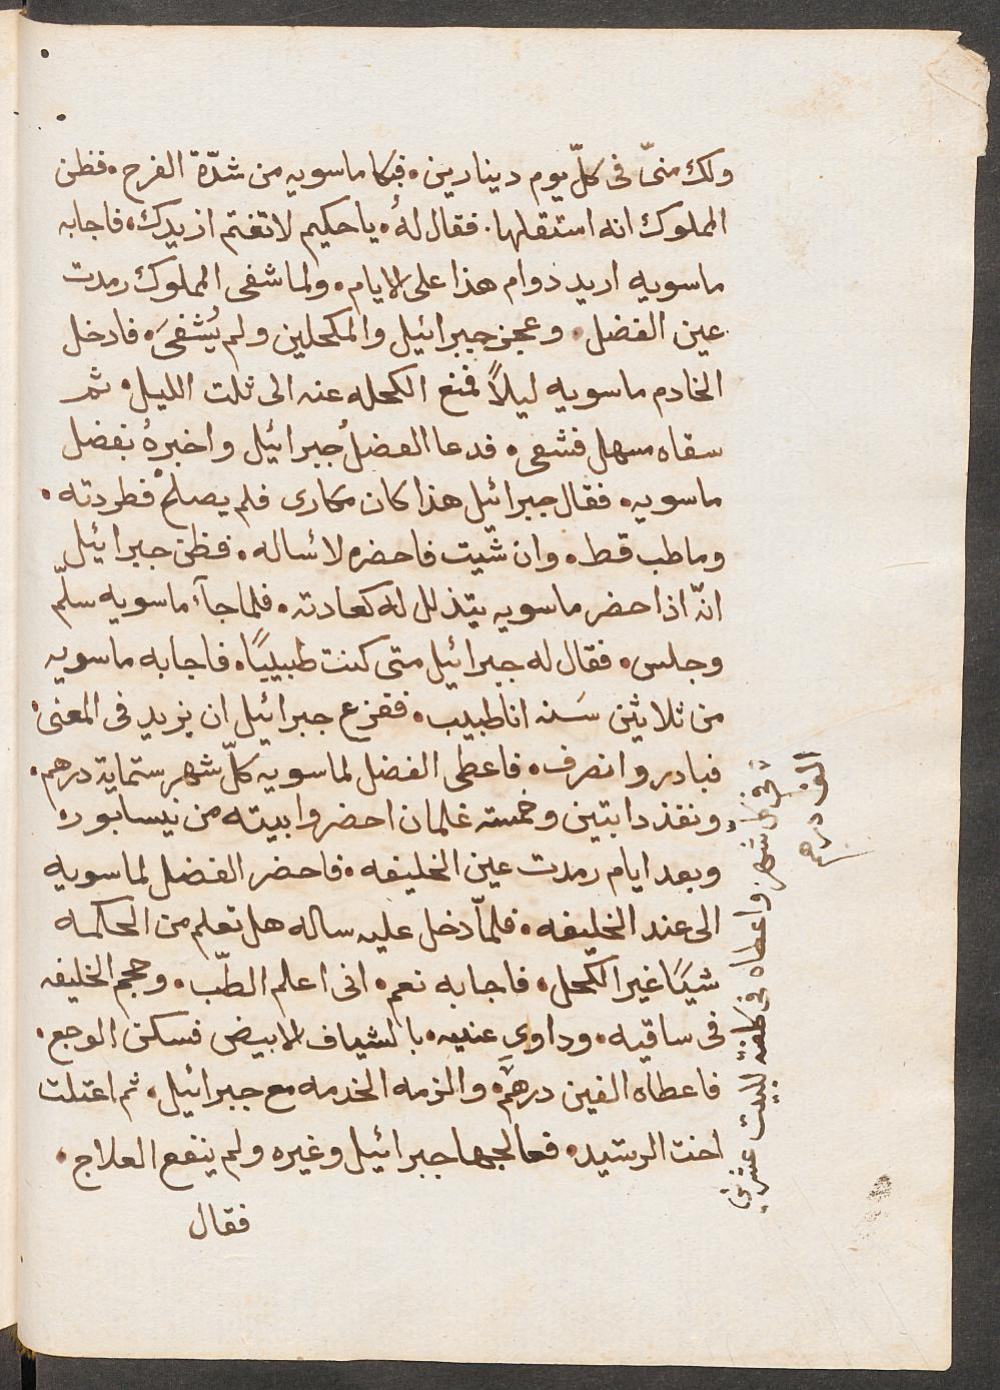 ولك منّى فى كلّ يوم دينارين. فبكا ماسويه من شدّة الفرح. فظن
المملوك انه استقلها. فقال لهُ. يا حكيم لا تغتم ازيدك. فاجابه
ماسويه اريد دوام هذا على الايام. ولما شفى المملوك رمدت
عين الفضل. وعجز جبرائيل والمكحلين ولم يُشفىَ. فادخل
الخادم ماسويه ليلاً فمنع الكحله عنه الى ثلت الليل. ثم
سقاه مسهل فشفى. فدعا الفضلُ جبرائيل واخبرهُ بفضل
ماسويه. فقال جبرائيل هذا كان مكارى فلم يصلح فطردته.
وما طب قط. وان شيت فاحضره لاساله. فظن جبرائيل
انّ اذا حضر ماسويه يتذلل له كعادته. فلما جآء ماسويه سلّم
وجلس. فقال له جبرائيل متى كنت طبيبًا. فاجابه ماسويه
من ثلاثين سَنه انا طبيب. ففزع جبرائيل ان يزيد فى المعنى.
فبادر وانصرف. فاعطى الفضل لماسويه كلّ شهر ستماية درهم.
ونفذ دابتين وخمسة غلمان احضروا بيته من نيسابوره
وبعد ايام رمدت عين الخليفه. فاحضر الفضل لماسويه
الى عند الخليفه. فلمّا دخل عليه ساله هل تعلم من الحكمه
شيًا غير الكّحل. فاجابه نعم. انى اعلم الطّب. وحجم الخليفه
فى ساقيه. وداوى عنيه. بالشياف الابيض فسكن الوجع.
فاعطاه الفين درهم. والزمه الخدمه مع جبرائيل. ثم اعتلت
اخت الرشيد. فعالجها جبرائيل وغيره ولم ينفع العلاج.
فقال
فى كل شهر واعطاه فى كلفة للبيت عشرين
الف درهم